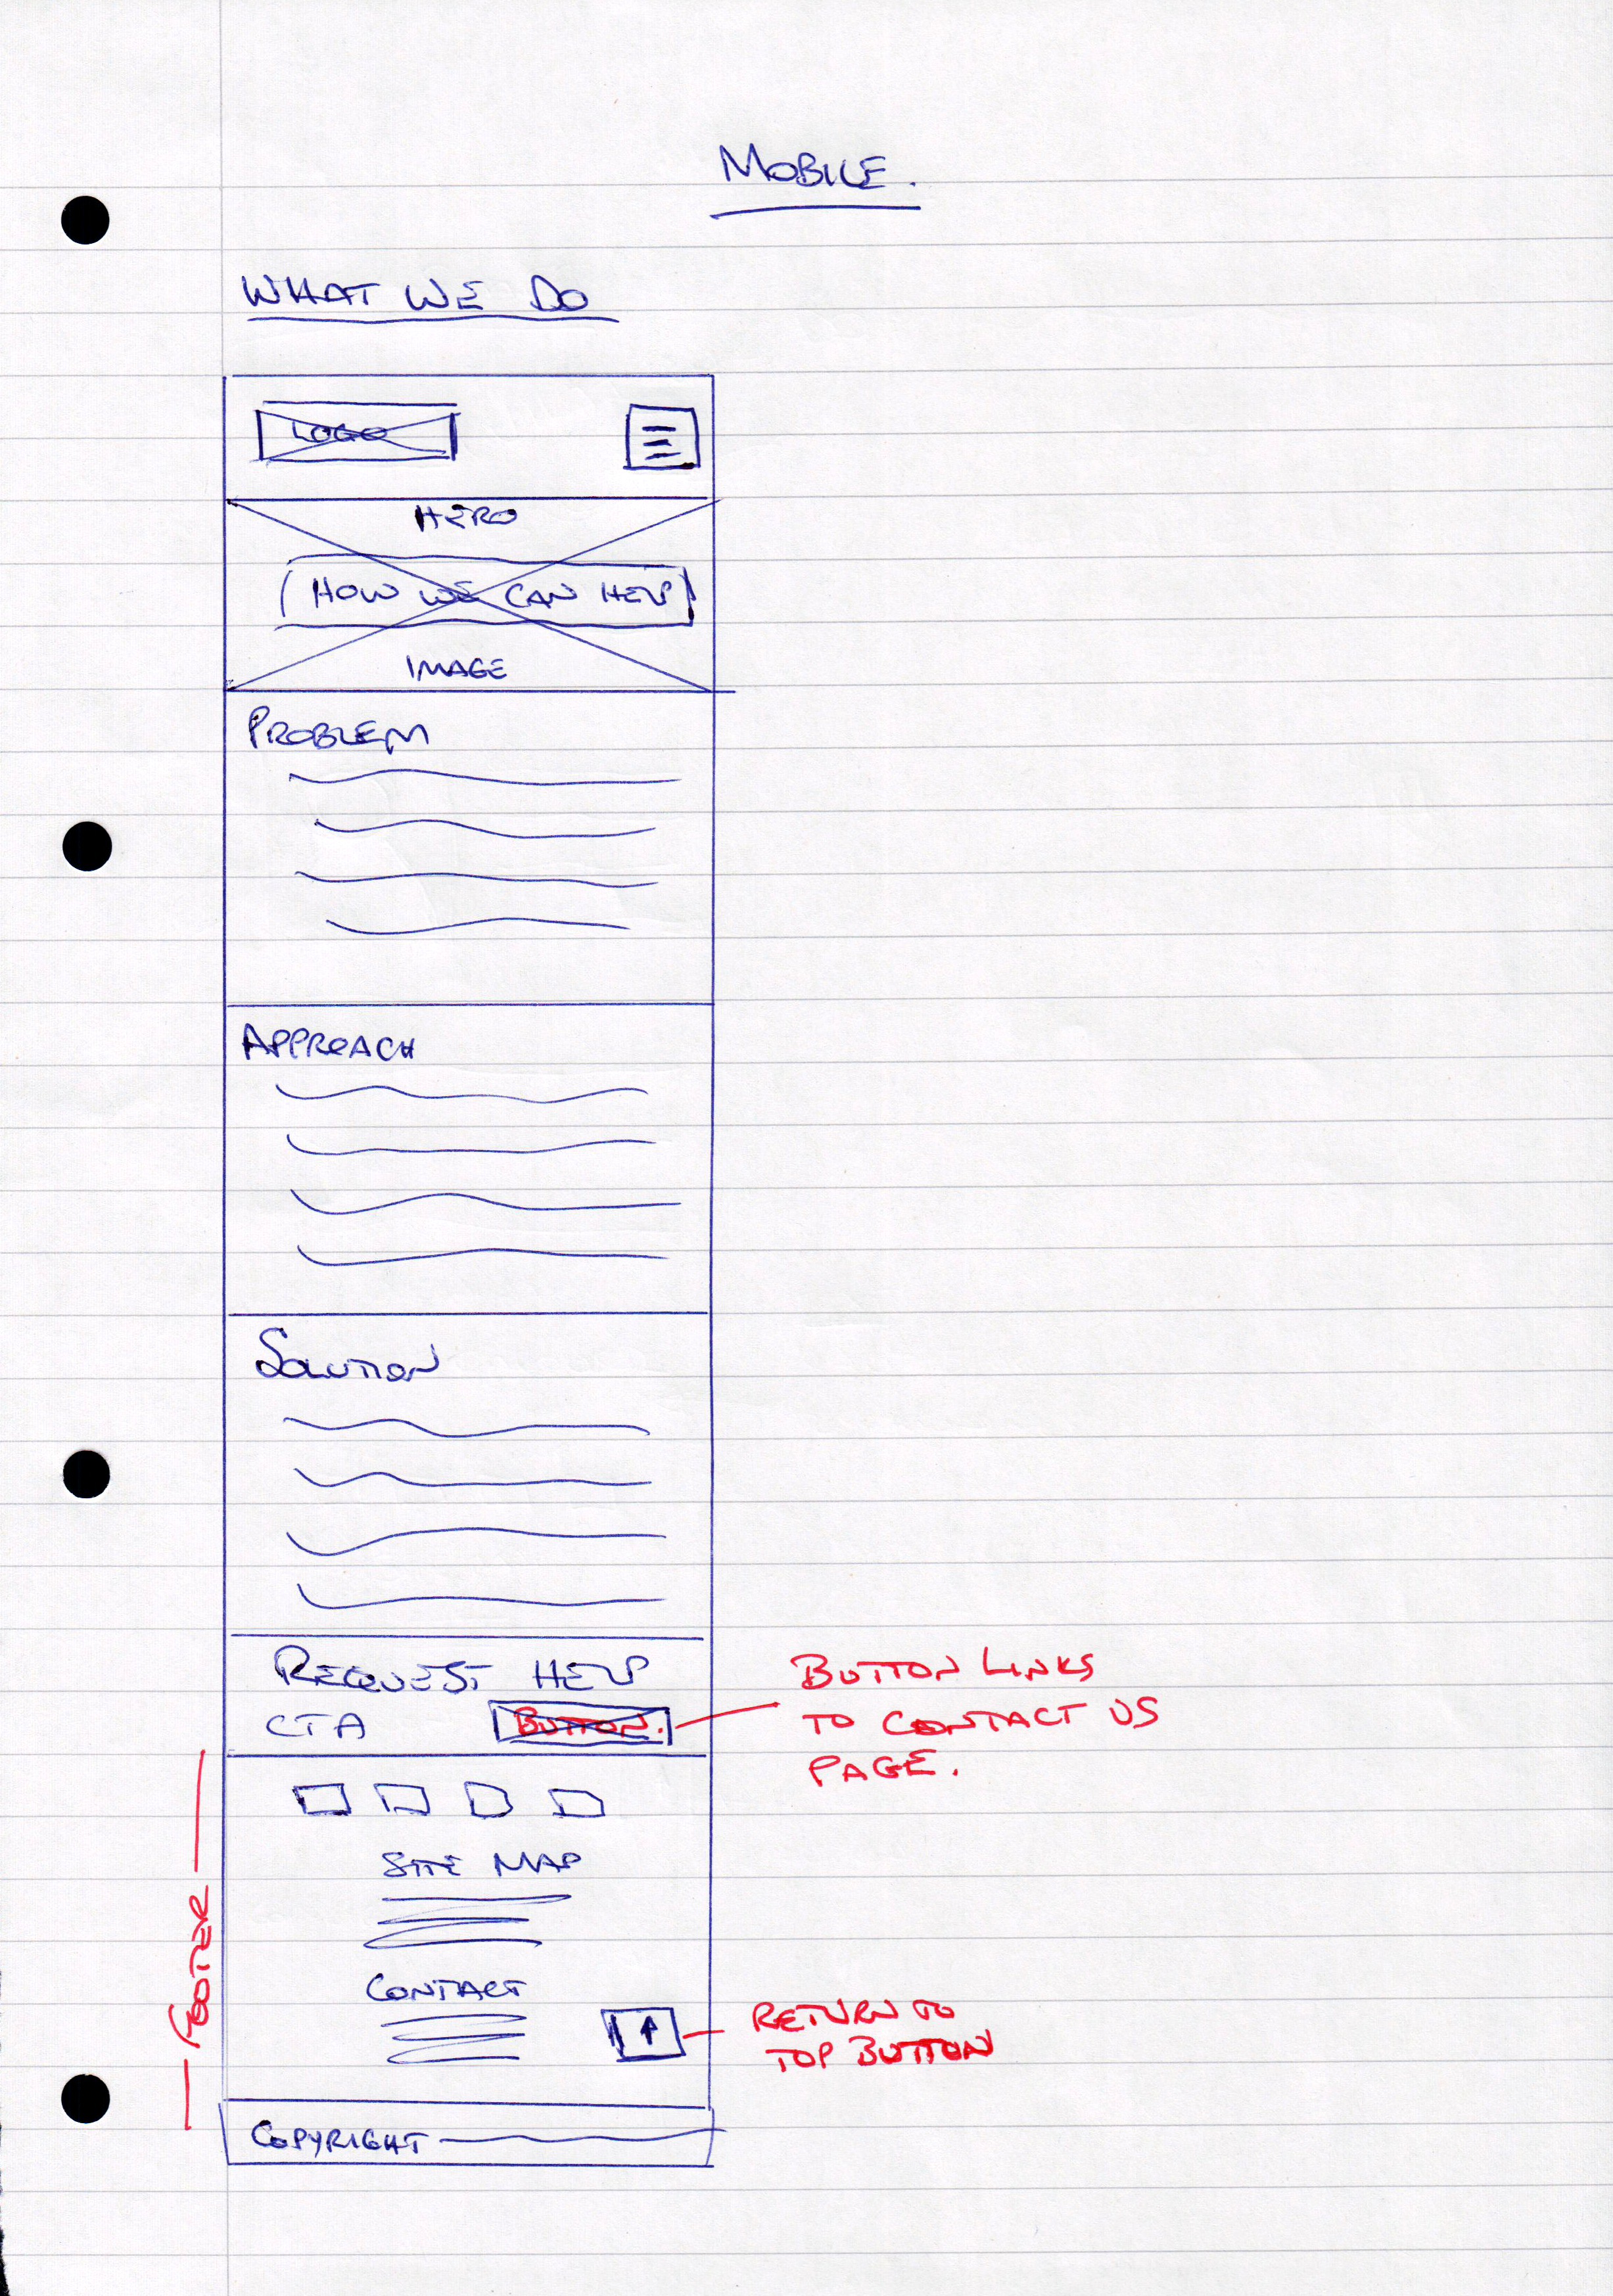 MOBILE.
WHAT WE DO
LOGO
HERO
HOW WE CAN HELP
IMAGE
PROBLEM
APPROACH
SOLUTION
REQUEST HELP
CTA BUTTON.
BUTTON LINKS
TO CONTACT US
PAGE.
FOOTER
SITE MAP
CONTACT
RETURN TO
TOP BUTTON
COPYRIGHT